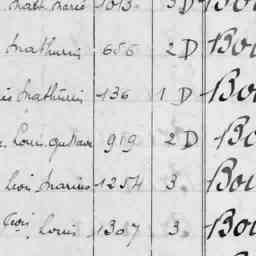 Marie 1013 3 D Bou
Mathurin 656 2 D Bou
Mathurin 136 1 D Bou
Louis Gustave 919 2 D Bo
Marius 1254 3 Bou
Louis 1307 3 Bou